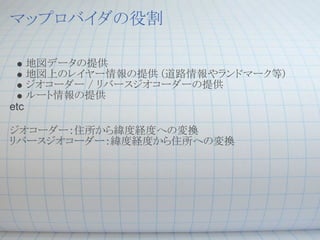 マップロバイダの役割
● 地図データの提供
● 地図上のレイヤー情報の提供 (道路情報やランドマーク等)
● ジオコーダー / リバースジオコーダーの提供
● ルート情報の提供
etc
ジオコーダー：住所から緯度経度への変換
リバースジオコーダー：緯度経度から住所への変換